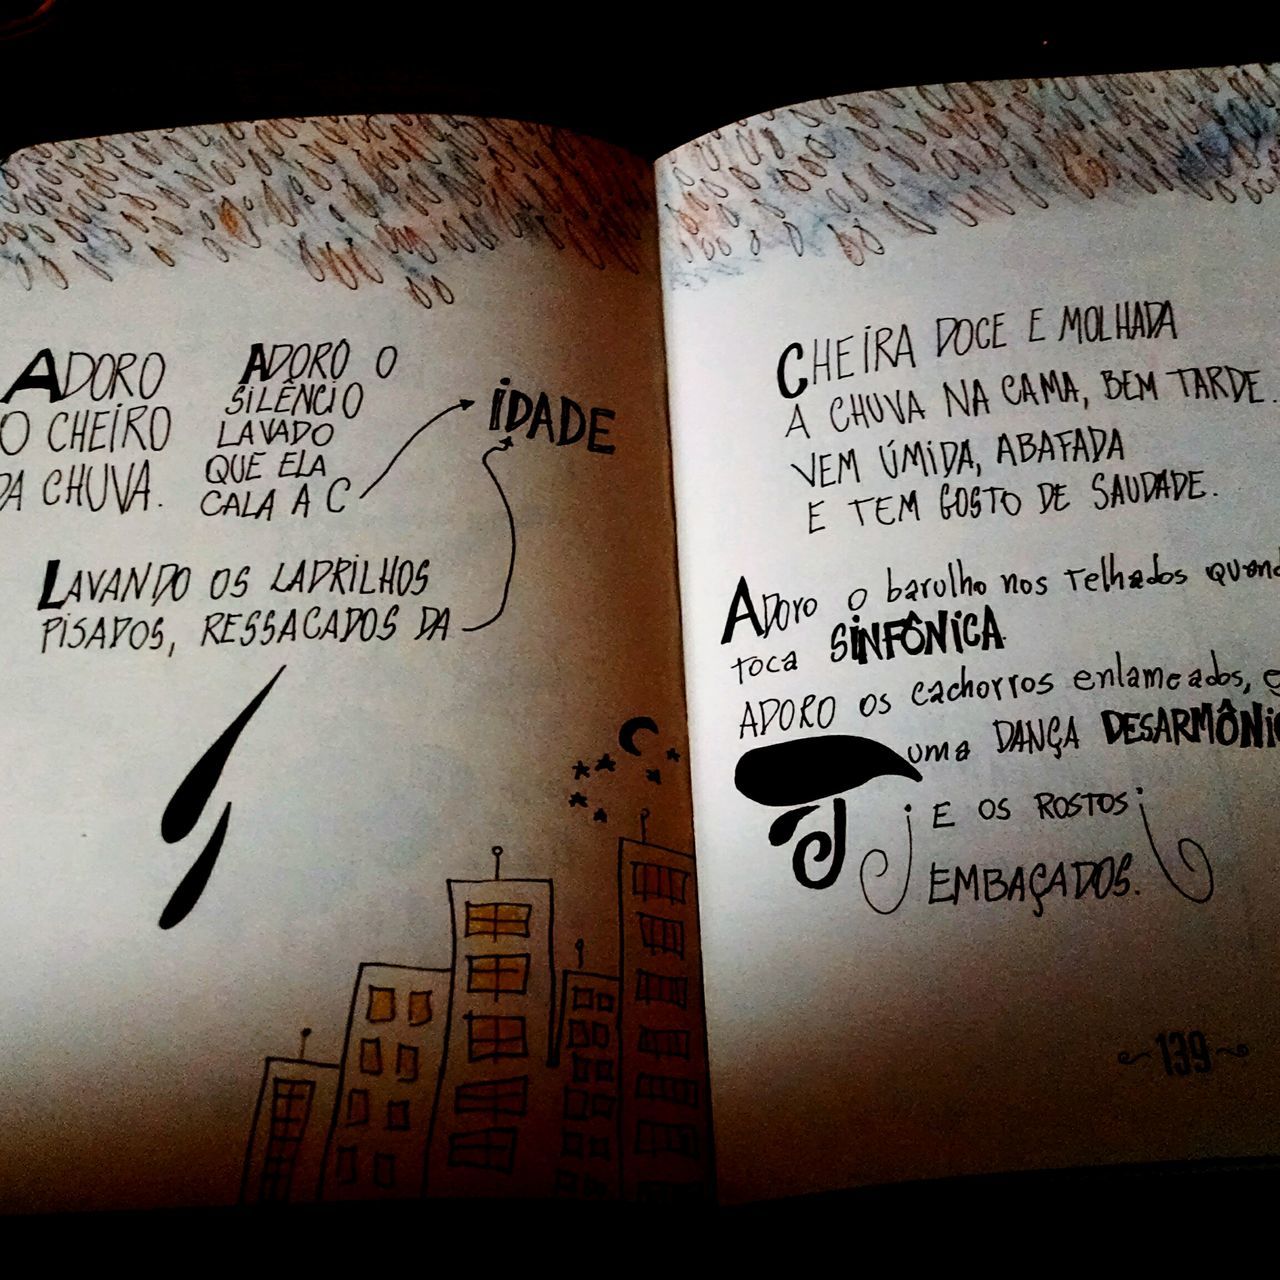 ADORO
O CHEIRO
DA CHUVA.
ADORO O
SILÊNCIO
LAVADO
QUE ELA
CALA A C
IDADE
LAVANDO OS LADRILHOS
PISADOS, RESSACADOS DA
CHEIRA DOCE E MOLHADA
A CHUVA NA CAMA, BEM TARDE.
VEM ÚMIDA, ABAFADA
E TEM GOSTO DE SAUDADE.
ADORO o barulho nos telhados quand
toca SINFÔNICA.
ADORO os cachorros enlameados, e
uma DANÇA DESARMÔNIC
E OS ROSTOS
EMBAÇADOS.
139